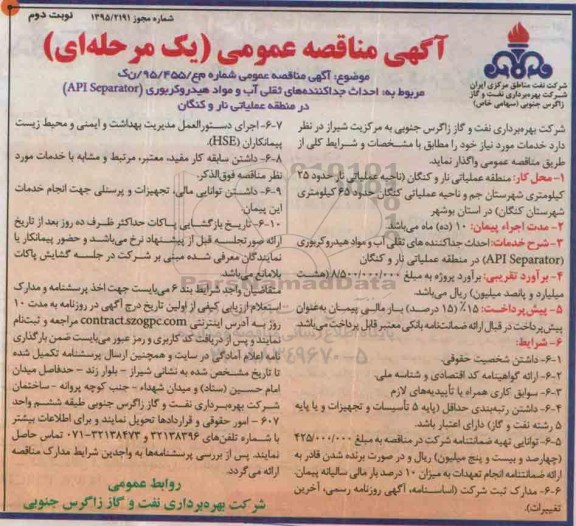 شماره مجوز ۱۳۹۵/۲۱۹۱
نوبت دوم
شرکت نفت مناطق مرکزی ایران
شرکت بهره‌برداری نفت و گاز
زاگرس جنوبی (سهامی خاص)
آگهی مناقصه عمومی (یک مرحله‌ای)
موضوع: آگهی مناقصه عمومی شماره مع/۴۵۵/۹۵/ن‌ک
مربوط به: احداث جداکننده‌های ثقلی آب و مواد هیدروکربوری (API Separator)
در منطقه عملیاتی نار و کنگان
شرکت بهره‌برداری نفت و گاز زاگرس جنوبی به مرکزیت شیراز در نظر
دارد خدمات مورد نیاز خود را مطابق با مشخصات و شرایط کلی از
طریق مناقصه عمومی واگذار نماید.
۱- محل کار: منطقه عملیاتی نار و کنگان (ناحیه عملیاتی نار حدود ۲۵
کیلومتری شهرستان جم و ناحیه عملیاتی کنگان حدود ۶۵ کیلومتری
شهرستان کنگان) در استان بوشهر
۲- مدت اجراء پیمان: ۱۰ (ده) ماه می‌باشد.
۳- شرح خدمات: احداث جداکننده های ثقلی آب و مواد هیدروکربوری
(API Separator) در منطقه عملیاتی نار و کنگان
۴- برآورد تقریبی: برآورد پروژه به مبلغ ۸/۵۰۰/۰۰۰/۰۰۰ (هشت
میلیارد و پانصد میلیون) ریال می‌باشد.
۵- پیش‌پرداخت: ۱۵٪ (۱۵ درصد) بهاء مالی پیمان به‌عنوان
پیش‌پرداخت در قبال ارائه ضمانتنامه بانکی معتبر قابل پرداخت می‌باشد.
۶- شرایط:
۶-۱- داشتن شخصیت حقوقی.
۶-۲- ارائه گواهینامه کد اقتصادی و شناسه ملی.
۶-۳- سوابق کاری همراه با تأییدیه‌های لازم
۶-۴- داشتن رتبه‌بندی حداقل (پایه ۵ تأسیسات و تجهیزات و یا پایه
۵ رشته نفت و گاز) دارای اعتبار باشد.
۶-۵- توانایی تهیه ضمانتنامه شرکت در مناقصه به مبلغ ۴۲۵/۰۰۰/۰۰۰
(چهارصد و بیست و پنج میلیون) ریال و در صورت برنده شدن قادر به
ارائه ضمانتنامه انجام تعهدات به میزان ۱۰ درصد بار مالی سالیانه پیمان.
۶-۶- مدارک ثبت شرکت (اساسنامه، آگهی روزنامه رسمی، آخرین
تغییرات).
۶-۷- اجرای دستورالعمل مدیریت بهداشت و ایمنی و محیط زیست
پیمانکاران (HSE).
۶-۸- داشتن سابقه کار مفید، معتبر، مرتبط و مشابه با خدمات مورد
نظر مناقصه فوق‌الذکر.
۶-۹- داشتن توانایی مالی، تجهیزات و پرسنلی جهت انجام خدمات
این پیمان.
۶-۱۰- تاریخ بازگشایی پاکات حداکثر ظرف ده روز بعد از تاریخ
ارائه صورتجلسه قبل از پیشنهاد نرخ می‌باشد و حضور پیمانکار یا
نمایندگان معرفی شده مبنی بر شرکت در جلسه گشایش پاکات
بلامانع می‌باشد.
متقاضیان واجد شرایط بند ۶ می‌بایست جهت اخذ پرسشنامه و مدارک
استعلام ارزیابی کیفی از اولین تاریخ درج آگهی در روزنامه به مدت ۱۰
روز به آدرس اینترنتی contract.szogpc.com مراجعه و ثبت‌نام
نمایند و پس از دریافت کد کاربری و رمز عبور می‌بایست ضمن بارگذاری
نامه اعلام آمادگی در سایت و همچنین ارسال پرسشنامه تکمیل شده
تا تاریخ مشخص شده به نشانی شیراز - بلوار زند - حدفاصل میدان
امام حسین (ستاد) و میدان شهداء - جنب کوچه پروانه - ساختمان
شرکت بهره‌برداری نفت و گاز زاگرس جنوبی طبقه ششم واحد
۶۰۷ - امور حقوقی و قراردادها تحویل نمایند و برای اطلاعات بیشتر
با شماره تلفن‌های ۳۲۱۳۸۳۹۶ و ۳۲۱۳۸۴۷۳-۰۷۱ تماس حاصل
نمایند. پس از بررسی پرسشنامه‌ها به واجدین شرایط مدارک مناقصه
ارائه می‌گردد.
روابط عمومی
شرکت بهره‌برداری نفت و گاز زاگرس جنوبی